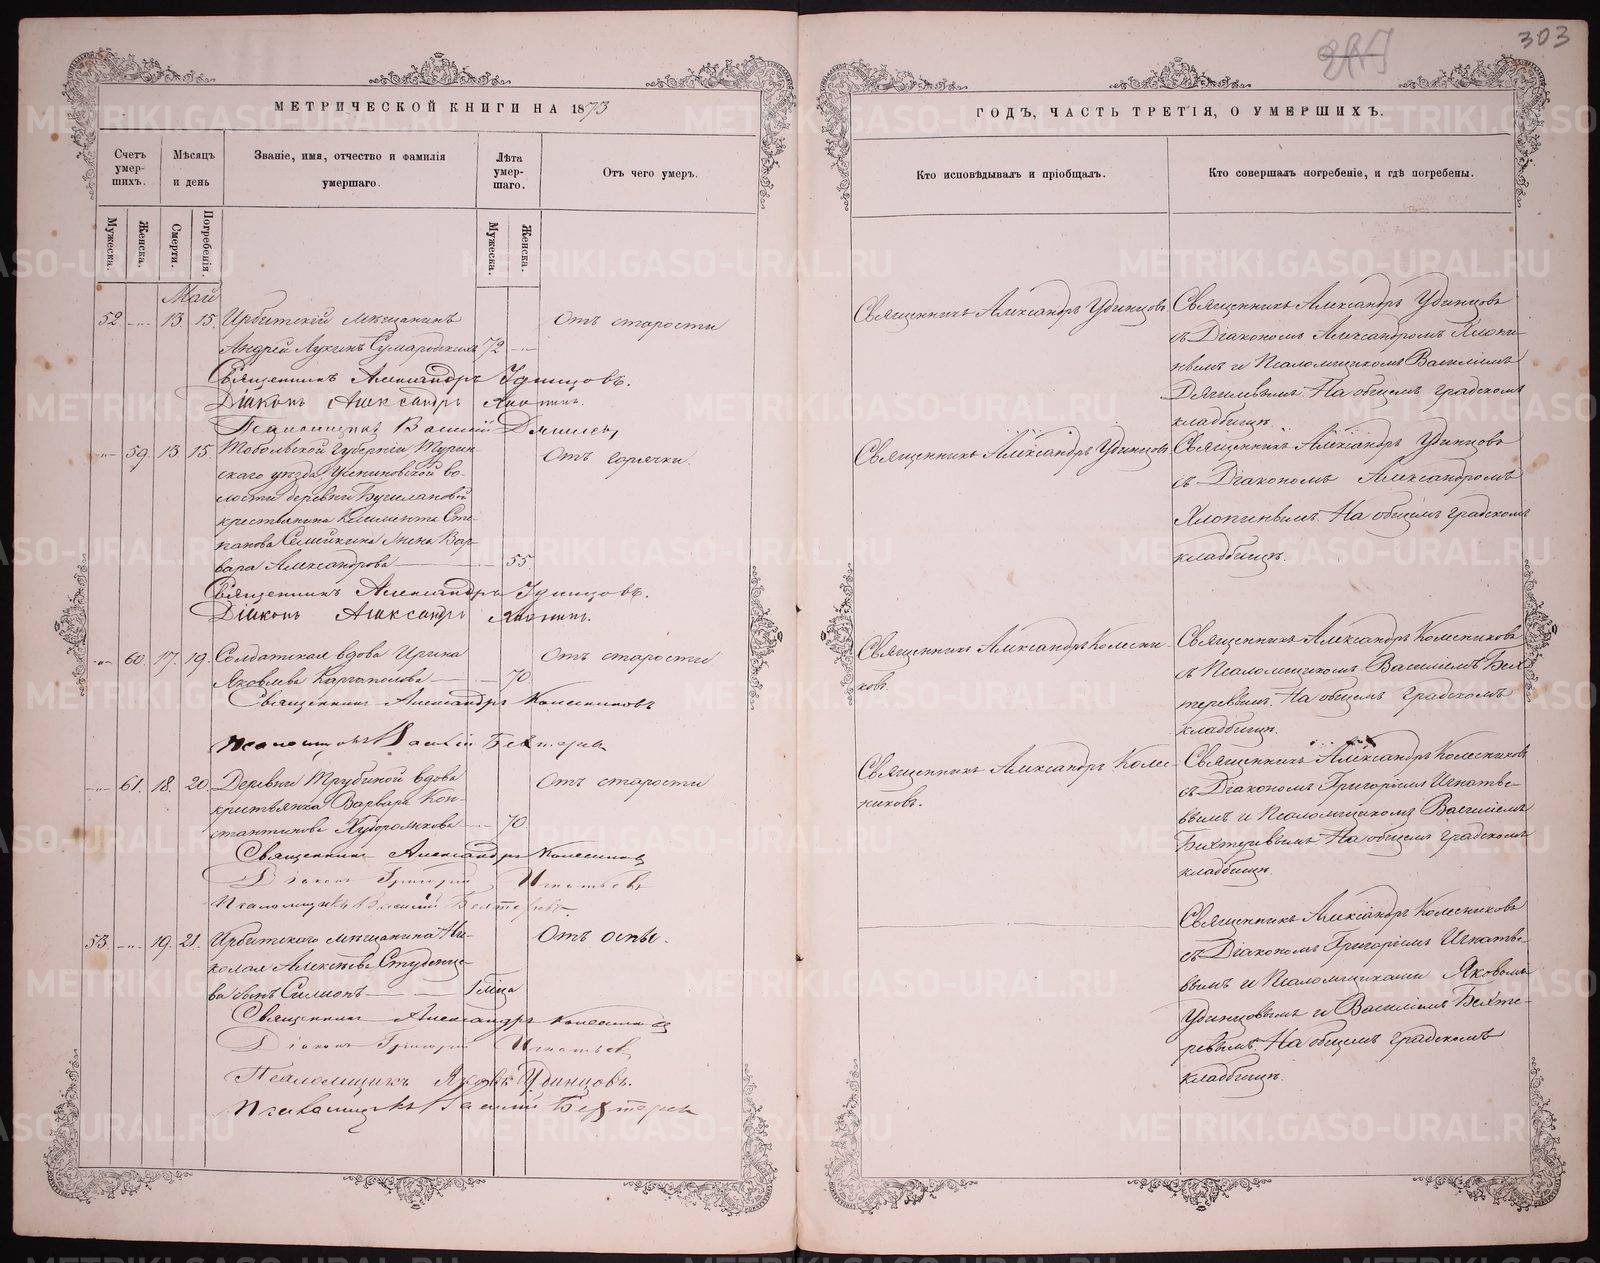 303
МЕТРИЧЕСКОЙ КНИГИ НА 1873
ГОДЪ, ЧАСТЬ ТРЕТІЯ, О УМЕРШИХЪ.
Счетъ умер-шихъ.
Мѣсяцъ и день
Званіе, имя, отчество и фамилія
умершаго.
Лѣта умер-шаго.
Отъ чего умеръ.
Кто исповѣдывалъ и пріобщалъ.
Кто совершалъ погребеніе, и гдѣ погребены.
Мужеска.
Женска.
Смерти.
Погребенія.
Мужеска.
Женска.
Май
52 13. 15. Ирбитскій мѣщанинъ
Отъ старости
Андрей Лукинъ 72
Священникъ Александръ Удинцовъ.
Діаконъ Александръ Хлопинъ.
Псаломщикъ Василій
Священникъ Александръ Удинцовъ
Священникъ Александръ Удинцовъ
съ Діакономъ Александромъ Хлопи-
нымъ и Псаломщикомъ Василіемъ
На общемъ градскомъ
кладбищѣ
59. 13 15. Тобольской Губерніи Турин-
скаго уѣзда, во-
Отъ горячки.
лости деревни
крестьянина Климента Сте-
панова жена Вар-
вара Александрова 55
Священникъ Александръ Удинцовъ.
Діаконъ Александръ Хлопинъ.
Священникъ Александръ Удинцовъ
Священникъ Александръ Удинцовъ
съ Діакономъ Александромъ
Хлопинымъ. На общемъ градскомъ
кладбищѣ.
60. 17. 19. Солдатская вдова Ирина
Отъ старости
Яковлева Каргаполова 70
Священникъ Александръ Колесниковъ
Псаломщикъ Василій Бехтеревъ
Священникъ Александръ Колесни-
ковъ.
Священникъ Александръ Колесниковъ
съ Псаломщикомъ Василіемъ Бех-
теревымъ. На общемъ градскомъ
кладбищѣ.
61. 18. 20. Деревни Трубиной вдова
Отъ старости
крестьянка Варвара Кон-
стантинова Худорожкова 70
Священникъ Александръ Колесниковъ
Діаконъ Григорій Игнатьевъ
Псаломщикъ Василій Бехтеревъ.
Священникъ Александръ Колес-
никовъ.
Священникъ Александръ Колесниковъ
съ Діакономъ Григоріемъ Игнатье-
вымъ и Псаломщикомъ Василіемъ
Бехтеревымъ На общемъ градскомъ
кладбищѣ.
53. 19. 21. Ирбитскаго мѣщанина Ни-
Отъ оспы.
колая Алексѣева Студенце-
ва сынъ Симеонъ
Священникъ Александръ Колесниковъ
Діаконъ Григорій Игнатьевъ
Псаломщикъ Яковъ Удинцовъ.
Псаломщикъ Василій Бехтеревъ
Священникъ Александръ Колесниковъ
съ Діакономъ Григоріемъ Игнатье-
вымъ и Псаломщиками Яковомъ
Удинцовымъ и Василіемъ Бехте-
ревымъ. На общемъ градскомъ
кладбищѣ.
METRIKI.GASO-URAL.RU